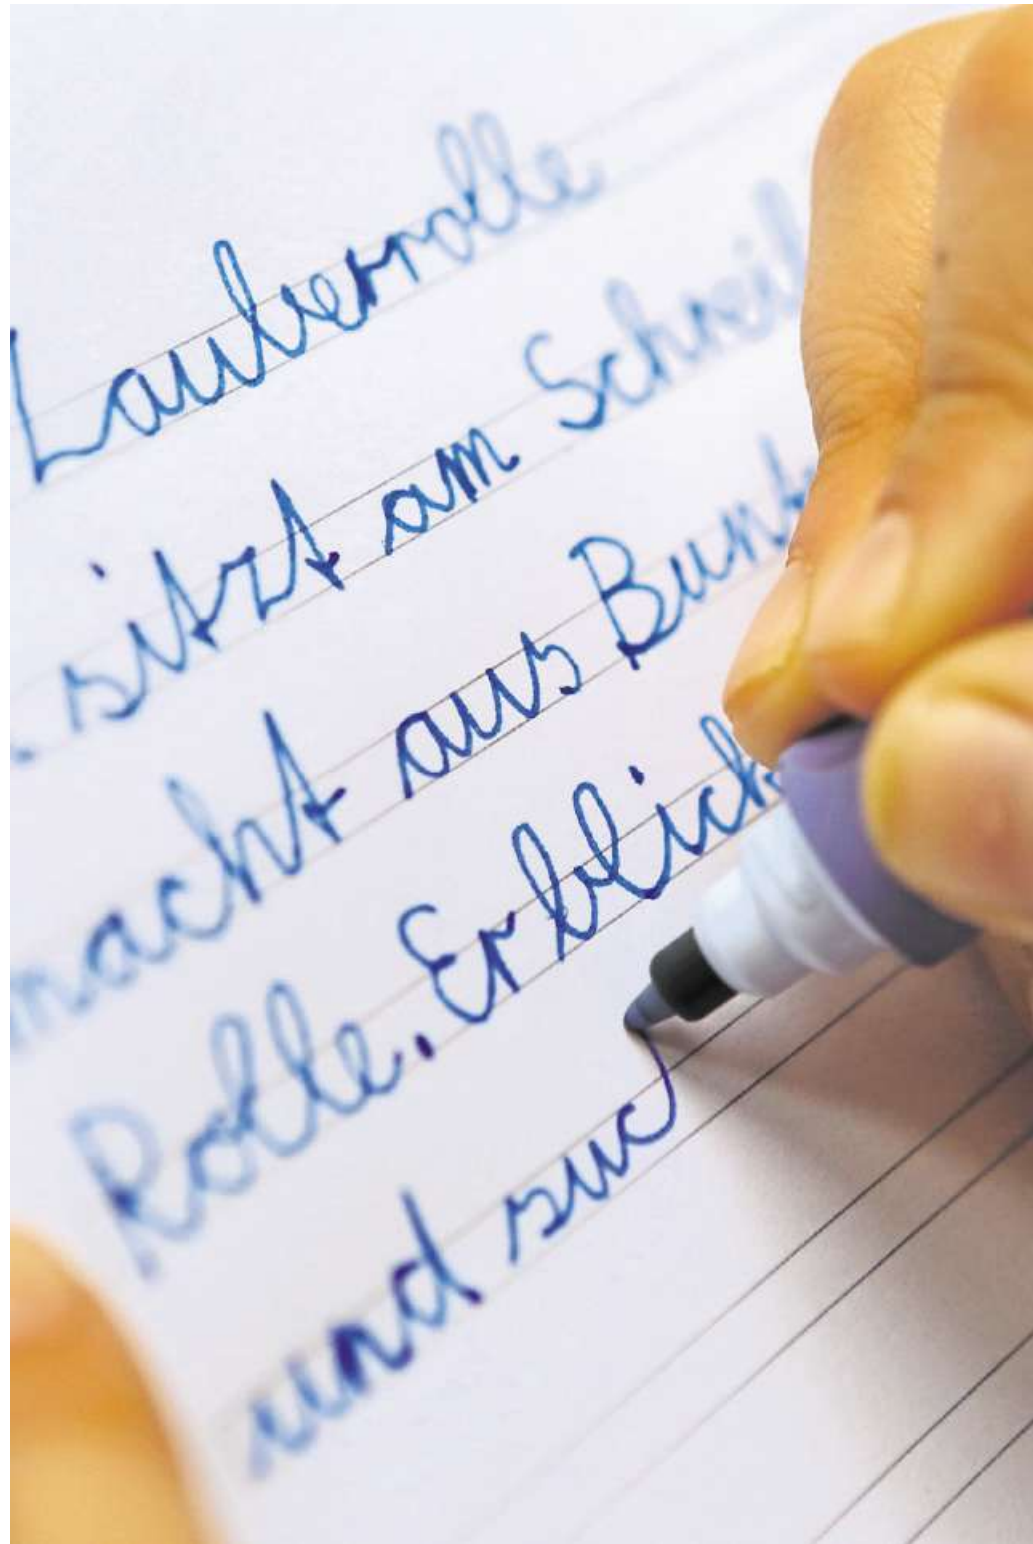 Lauberrolle
sitzt am Schreib
macht aus Bunt
Rolle. Er blick
und suc